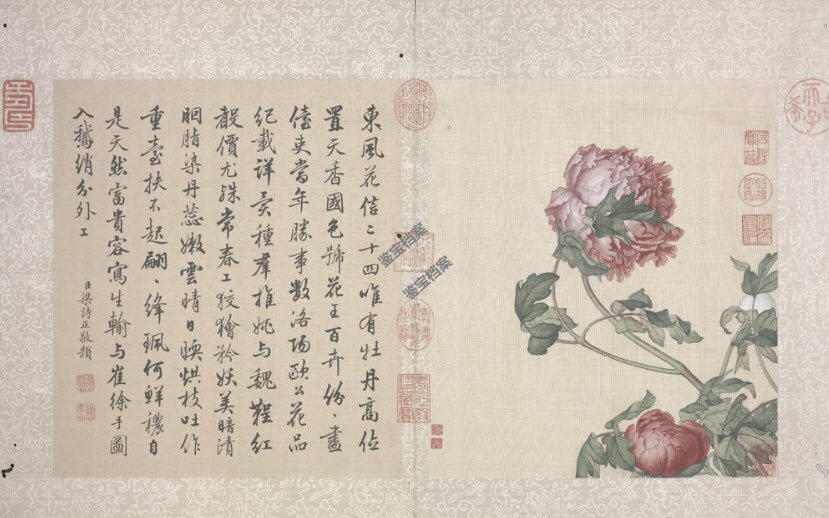 東風花信二十四唯有牡丹高位
置天香國色號花王百卉紛〻盡
儓吏當年勝事數洛陽歐公花品
紀載詳異種羣推姚與魏鞓紅
聲價尤殊常春工狡獪矜妖美暗漬
胭脂染丹蕊嫩雲晴日暖烘枝吐作
重臺扶不起翩〻絳珮何鮮穠自
是天然富貴容寫生輸與崔徐手圖
入鵝綃分外工
臣梁詩正敬題
鉴宝档案